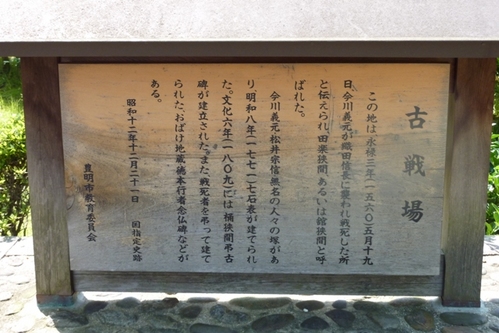 古戦場
この地は、永禄三年(一五六〇)五月十九
日、今川義元が織田信長に襲われ戦死した所
と伝えられ、田楽狭間、あるいは舘狭間と呼
ばれた。
今川義元、松井宗信、無名の人々の塚があ
り、明和八年(一七七一)七石表が建てられ
た。文化六年(一八〇九)には桶狭間弔古
碑が建立された。また、戦死者を弔って建て
られた、おばけ地蔵、徳本行者念仏碑などが
ある。
昭和十二年十二月二十一日 国指定史跡
豊明市教育委員会